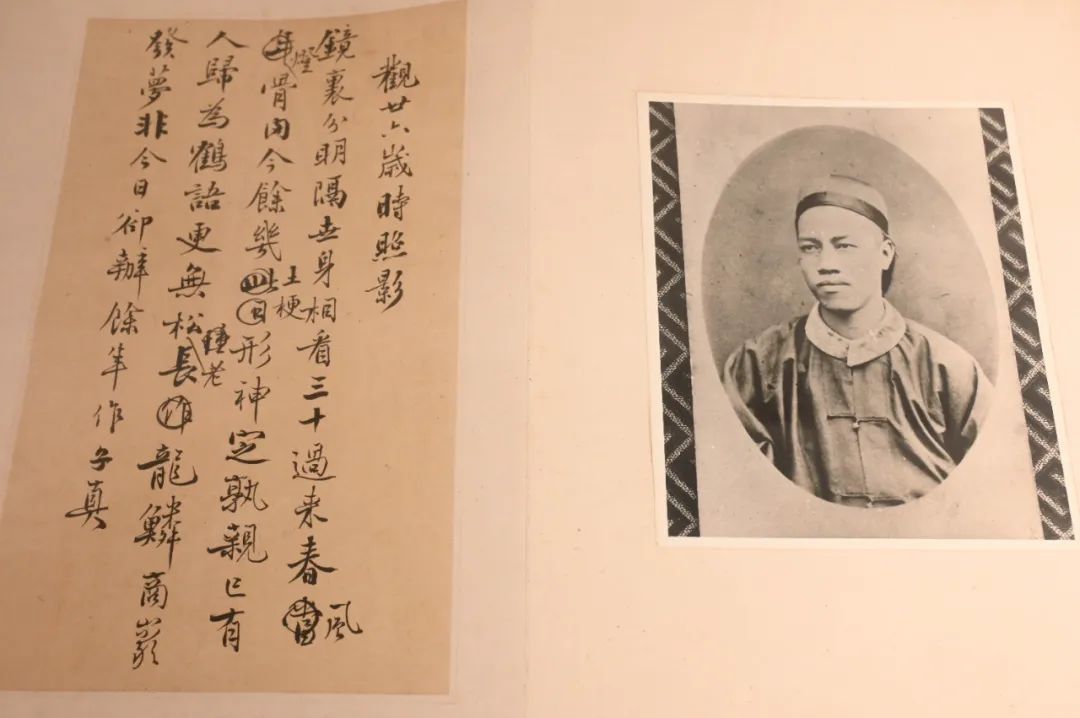 觀廿六歲時照影
鏡裏分明隔世身相看三十過來春風
燈骨肉今餘幾土梗形神定孰親已有
人歸為鶴語更無松種老龍鱗商巖
發夢非今日卻辦餘年作子真